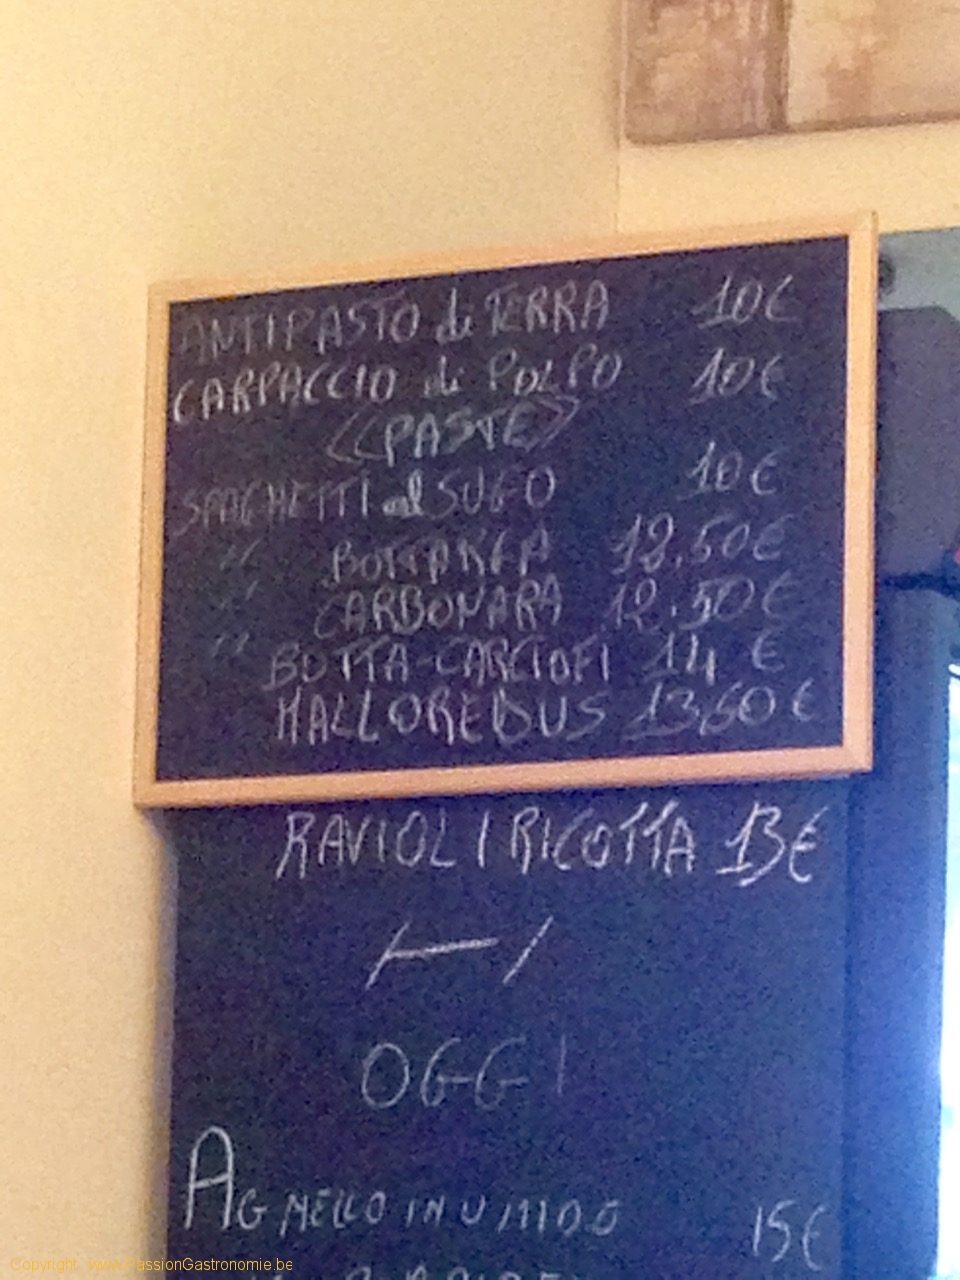 ANTIPASTO di TERRA 10€
CARPACCIO di POLPO 10€
((PASTE))
SPAGHETTI al SUGO 10€
" BOTTARGA 12,50€
" CARBONARA 12,50€
" BOTTA-CARCIOFI 14 €
MALLOREDUS 13,60€
RAVIOLI RICOTTA 13€
OGGI
AGNELLO IN UMIDO 15€
Copyright www.PassionGastronomie.be